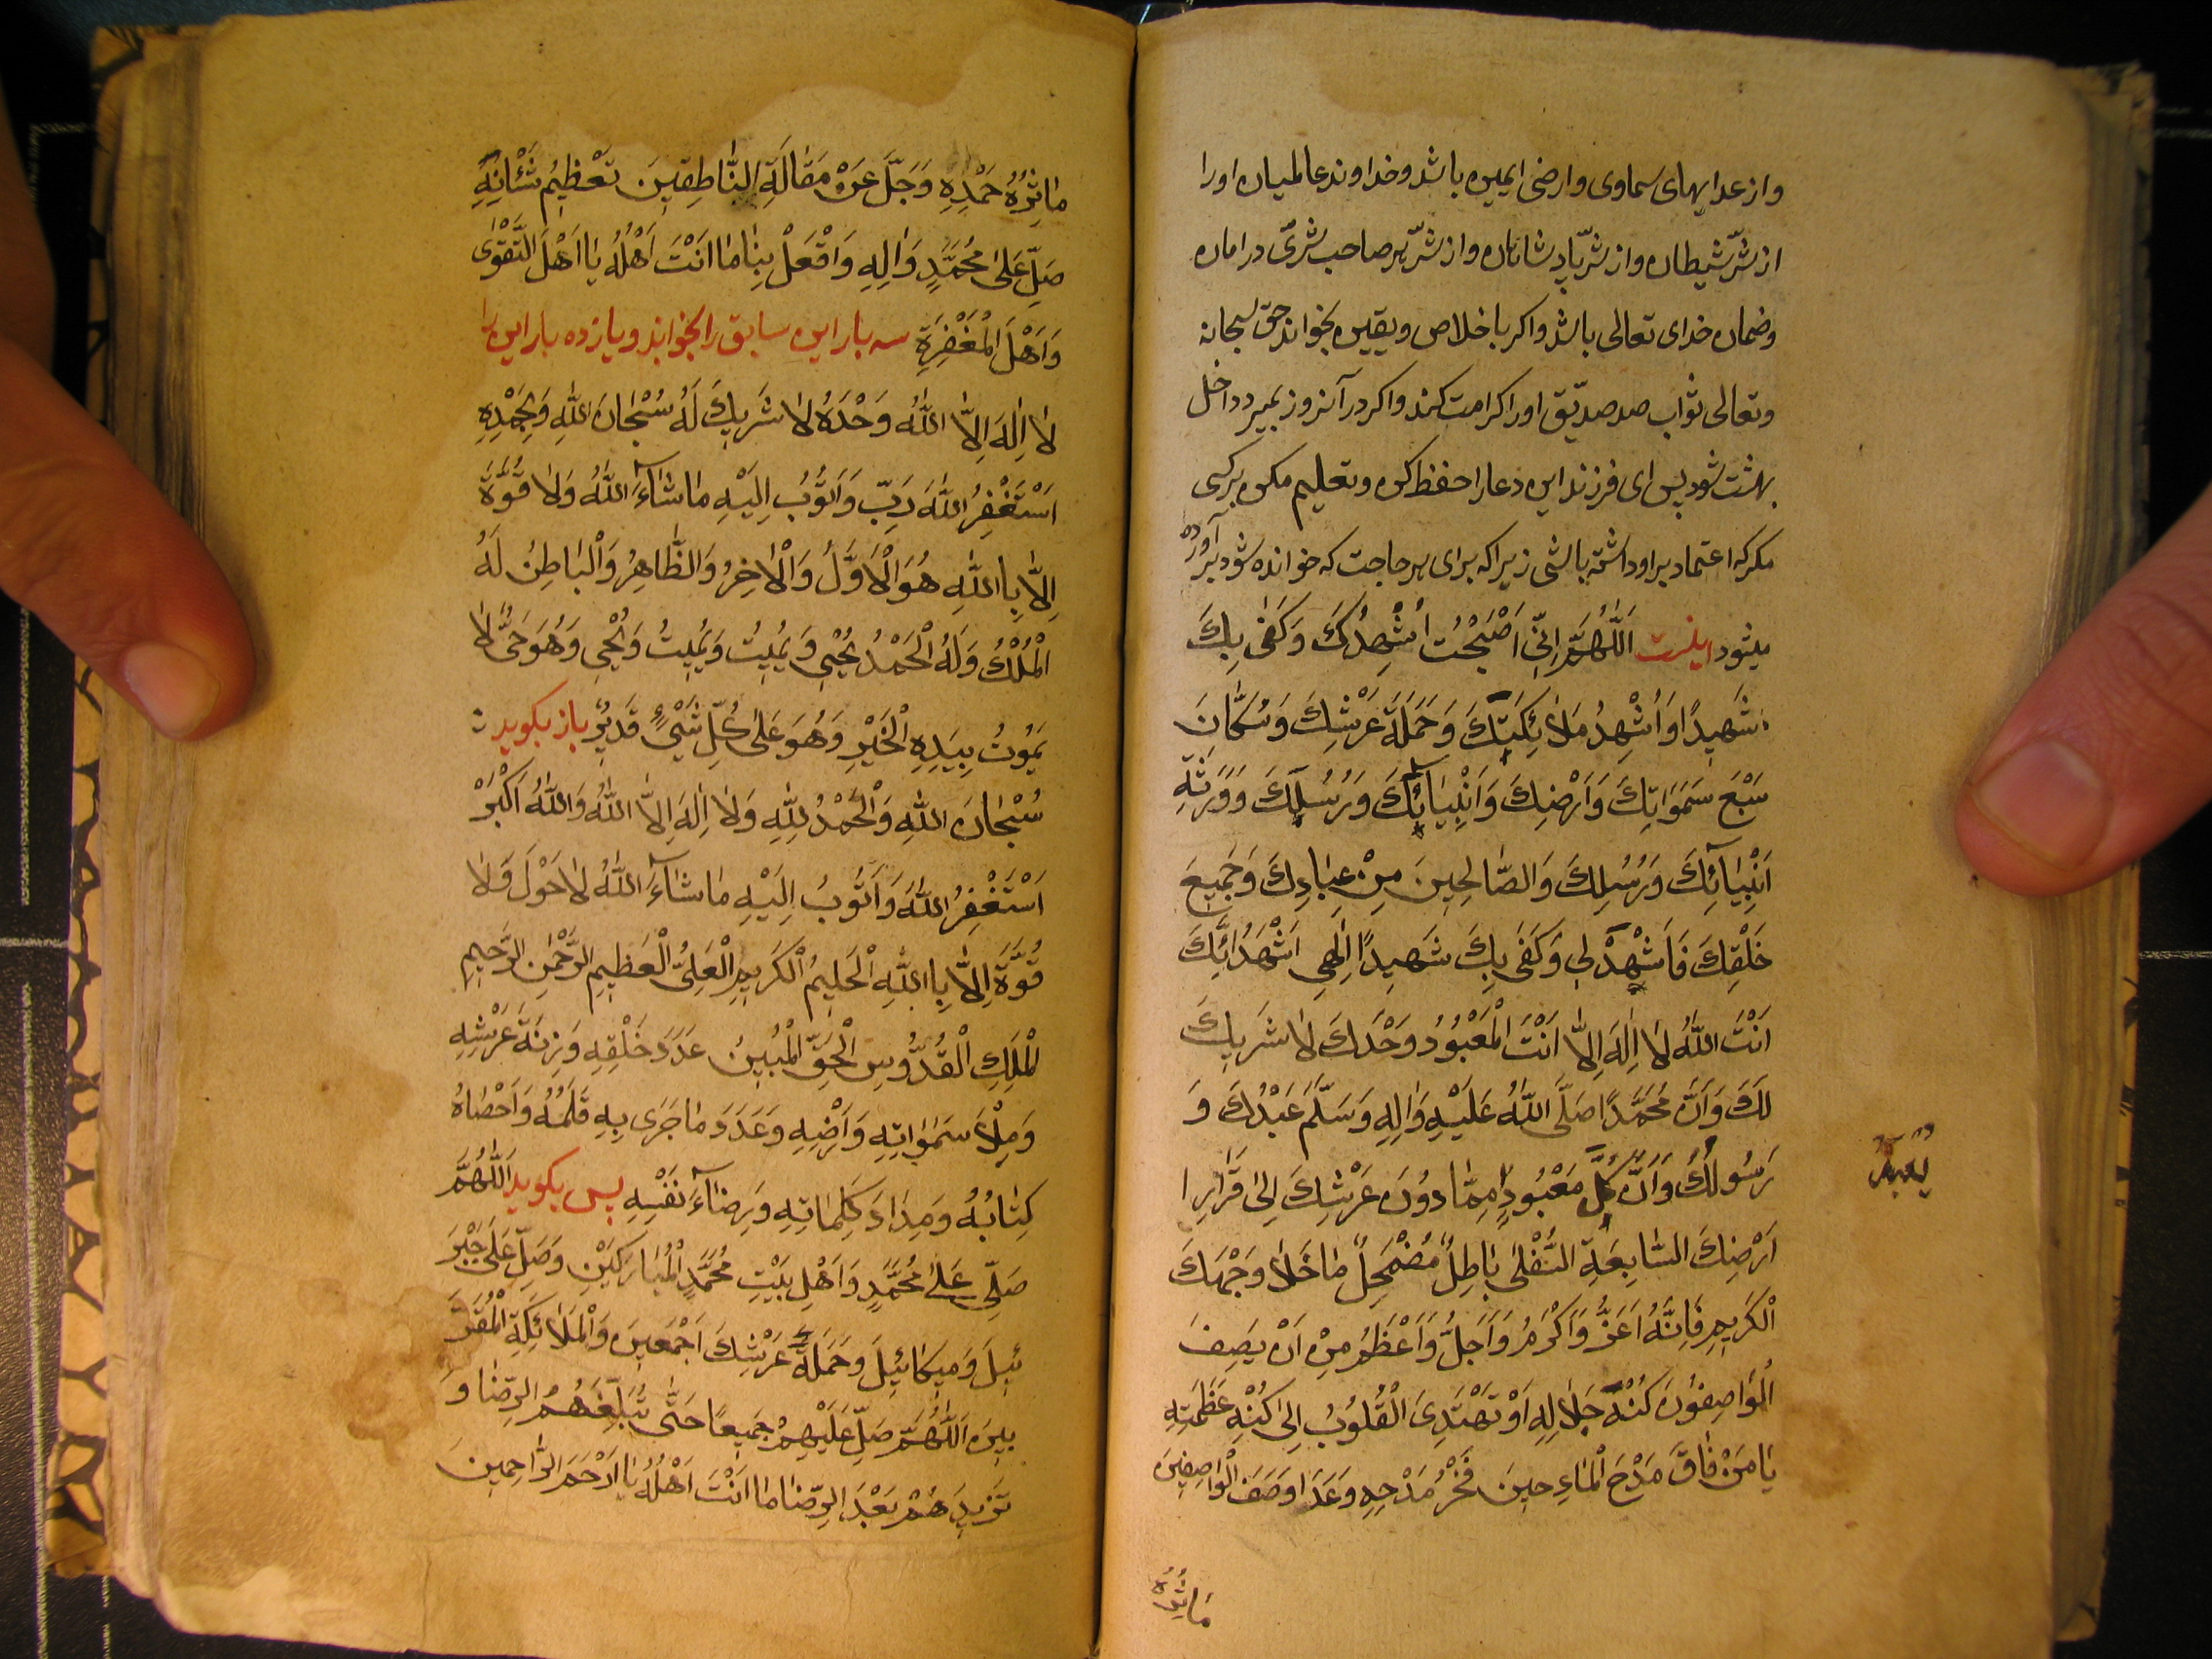 واز عدابهای سماوی وارضی ایمین باشد وخداوند عالمیان اورا
از شرّ شیطان واز شرّ پادشاهان واز شرّ هر صاحب شرّی در امان
وضمان خدای تعالی باشد واکر باخلاص ویقین بخواند حق سبحانه
وتعالی ثواب صد صدّیق اورا کرامت کند واکر در آنروز بمیرد داخل
بهشت شود پس ای فرزند این دعارا حفظ کن وتعلیم مکن بکسی
مکر که اعتماد بر او داشته باشی زیرا که برای هر حاجت که خوانده شود برآورده
میشود اینست اَللّٰهُمَّ اِنِّی اَصْبَحْتُ اُشْهِدُكَ وَكَفٰى بِكَ
شَهِيدًا وَاُشْهِدُ مَلَائِكَتَكَ وَحَمَلَةَ عَرْشِكَ وَسُكَّانَ
سَبْعَ سَمَوَاتِكَ وَاَرْضِكَ وَاَنْبِيَائِكَ وَرُسُلِكَ وَوَرَثَةِ
اَنْبِيَائِكَ وَرُسُلِكَ وَالصَّالِحِينَ مِنْ عِبَادِكَ وَجَمِيعَ
خَلْقِكَ فَاشْهَدْ لِي وَكَفَى بِكَ شَهِيدًا اِلٰهِي اَشْهَدُ اَنَّكَ
اَنْتَ اللّٰهُ لَا اِلٰهَ اِلَّا اَنْتَ الْمَعْبُودُ وَحْدَكَ لَا شَرِيكَ
لَكَ وَاَنَّ مُحَمَّدًا صَلَّى اللّٰهُ عَلَيْهِ وَاٰلِهِ وَسَلَّمَ عَبْدُكَ وَ
رَسُولُكَ وَاَنَّ كُلَّ مَعْبُودٍ مِمَّا دُونَ عَرْشِكَ اِلَى قَرَارِ
اَرْضِكَ السَّابِعَةِ السُّفْلٰى بَاطِلٌ مُضْمَحِلٌ مَا خَلَا وَجْهَكَ
الْكَرِيمِ فَاِنَّهُ اَعَزُّ وَاَكْرَمُ وَاَجَلُّ وَاَعْظَمُ مِنْ اَنْ يَصِفَ
الْوَاصِفُونَ كُنْهَ جَلَالِهِ اَوْ تَهْتَدِىَ الْقُلُوبُ اِلٰى كُنْهِ عَظَمَتِهِ
يَا مَنْ فَاقَ مَدْحَ الْمَادِحِينَ فَخْرُ مَدْحِهِ وَعَدَا وَصْفَ الْوَاصِفِينَ
مَاثِرُهُ
مَاثِرُهُ حَمْدِهِ وَجَلَّ عَنْ مَقَالَةِ النَّاطِقِينَ تَعْظِيمُ شَئْانِهِ
صَلِّ عَلٰى مُحَمَّدٍ وَاٰلِهِ وَافْعَلْ بِنَا مَا اَنْتَ اَهْلُهُ يَا اَهْلَ التَّقْوٰى
وَاَهْلَ الْمَغْفِرَةِ سه بار این سابق را بخواند ویازده بار این را
لَا اِلٰهَ اِلَّا اللّٰهُ وَحْدَهُ لَا شَرِيكَ لَهُ سُبْحَانَ اللّٰهِ وَبِحَمْدِهِ
اَسْتَغْفِرُ اللّٰهَ رَبِّ وَاَتُوبُ اِلَيْهِ مَا شَآءَ اللّٰهُ وَلَا قُوَّةَ
اِلَّا بِاللّٰهِ هُوَ الْاَوَّلُ وَالْاٰخِرُ وَالظَّاهِرُ وَالْبَاطِنُ لَهُ
الْمُلْكُ وَلَهُ الْحَمْدُ يُحْيِي وَيُمِيتُ وَيُمِيتُ وَيُحْيِي وَهُوَ حَيٌّ لَا
يَمُوتُ بِيَدِهِ الْخَيْرِ وَهُوَ عَلٰى كُلِّ شَىْءٍ قَدِيرٌ باز بکوید
سُبْحَانَ اللّٰهِ وَالْحَمْدُ لِلّٰهِ وَلَا اِلٰهَ اِلَّا اللّٰهُ وَاللّٰهُ اَكْبَرْ
اَسْتَغْفِرُ اللّٰهَ وَاَتُوبُ اِلَيْهِ مَا شَآءَ اللّٰهُ لَا حَوْلَ وَلَا
قُوَّةَ اِلَّا بِاللّٰهِ الْحَلِيمُ الْكَرِيمِ الْعَلِىِّ الْعَظِيمِ الرَّحْمٰنِ الرَّحِيمِ
الْمَلِكِ الْقُدُّوسِ الْحَقِّ الْمُبِينُ عَدَدَ خَلْقِهِ وَزِنَةَ عَرْشِهِ
وَمِلْاَ سَمٰوَاتِهِ وَاَرْضِهِ وَعَدَدَ مَا جَرٰى بِهِ قَلَمُهُ وَاَحْصَاهُ
كِتَابُهُ وَمِدَادَ كَلِمَاتِهِ وَرِضَآءَ نَفْسِهِ پس بکوید اَللّٰهُمَّ
صَلِّي عَلٰى مُحَمَّدٍ وَاَهْلِ بَيْتِ مُحَمَّدٍ الْمُبَارَكِينَ وَصَلِّ عَلٰى جَبْرَ
ئِيلَ وَمِيكَائِيلَ وَحَمَلَةَ عَرْشِكَ اَجْمَعِينَ وَالْمَلَائِكَةِ الْمُقَرَّ
بِينَ اَللّٰهُمَّ صَلِّ عَلَيْهِمْ جَمِيعًا حَتّٰى تُبَلِّغَهُمُ الرِّضَا وَ
تَزِيدَهُمْ بَعْدَ الرِّضَا مَا اَنْتَ اَهْلُهُ يَا اَرْحَمَ الرَّاحِمِينَ